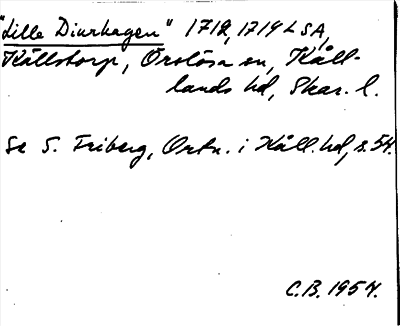 "Lille Diurhagen" 1712, 1719 LSA,
Källstorp, Örslösa sn, Kål-
lands hd, Skar. l.
Se S. Friberg, Ortn. i Kåll. hd, s. 54.
C.B. 1957.